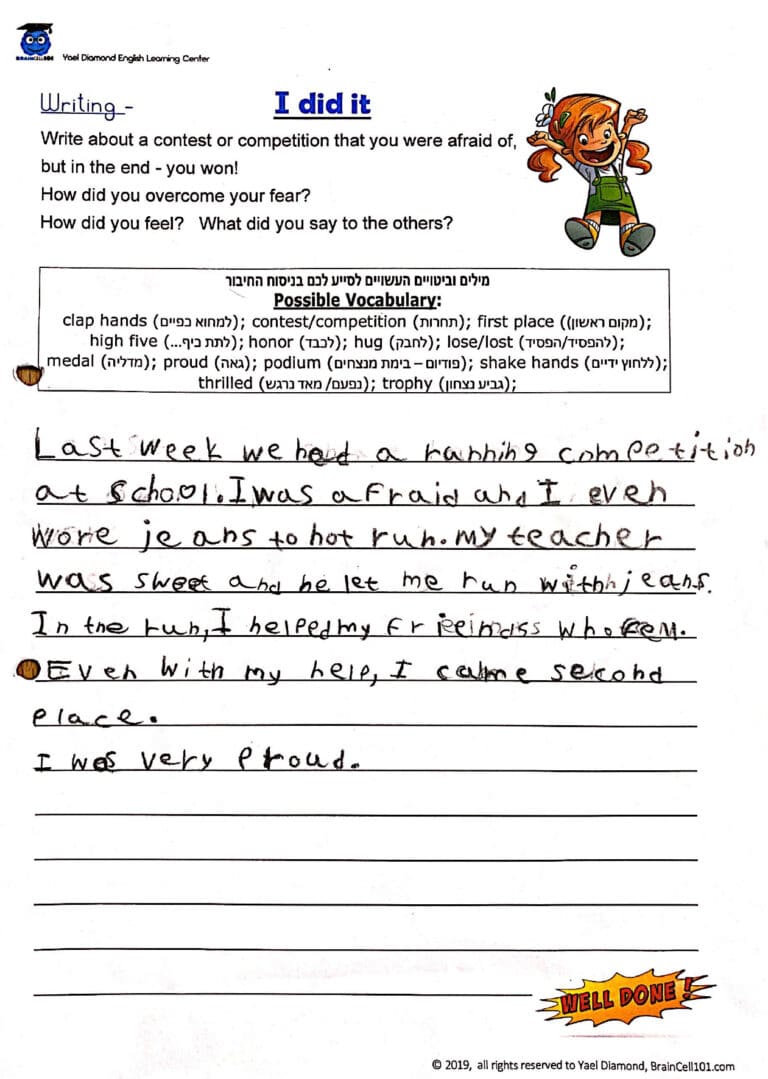 BRAINCELL101
Yael Diamond English Learning Center
Writing -
I did it
Write about a contest or competition that you were afraid of,
but in the end - you won!
How did you overcome your fear?
How did you feel? What did you say to the others?
מילים וביטויים העשויים לסייע לכם בניסוח החיבור
Possible Vocabulary:
clap hands (למחוא כפיים); contest/competition (תחרות); first place ((מקום ראשון);
high five (...לתת כיף); honor (לכבד); hug (לחבק); lose/lost (להפסיד/הפסיד);
medal (מדליה); proud (גאה); podium (פודיום – בימת מנצחים); shake hands (ללחוץ ידיים);
thrilled (נפעם/ מאד נרגש); trophy (גביע נצחון);
Last week we had a running competition
at school. I was afraid and I even
wore jeans to not run. my teacher
was sweet and he let me run with jeans.
In the run, I helped my who fell.
Even with my help, I came second
place.
I was very proud.
WELL DONE!
© 2019, all rights reserved to Yael Diamond, BrainCell101.com